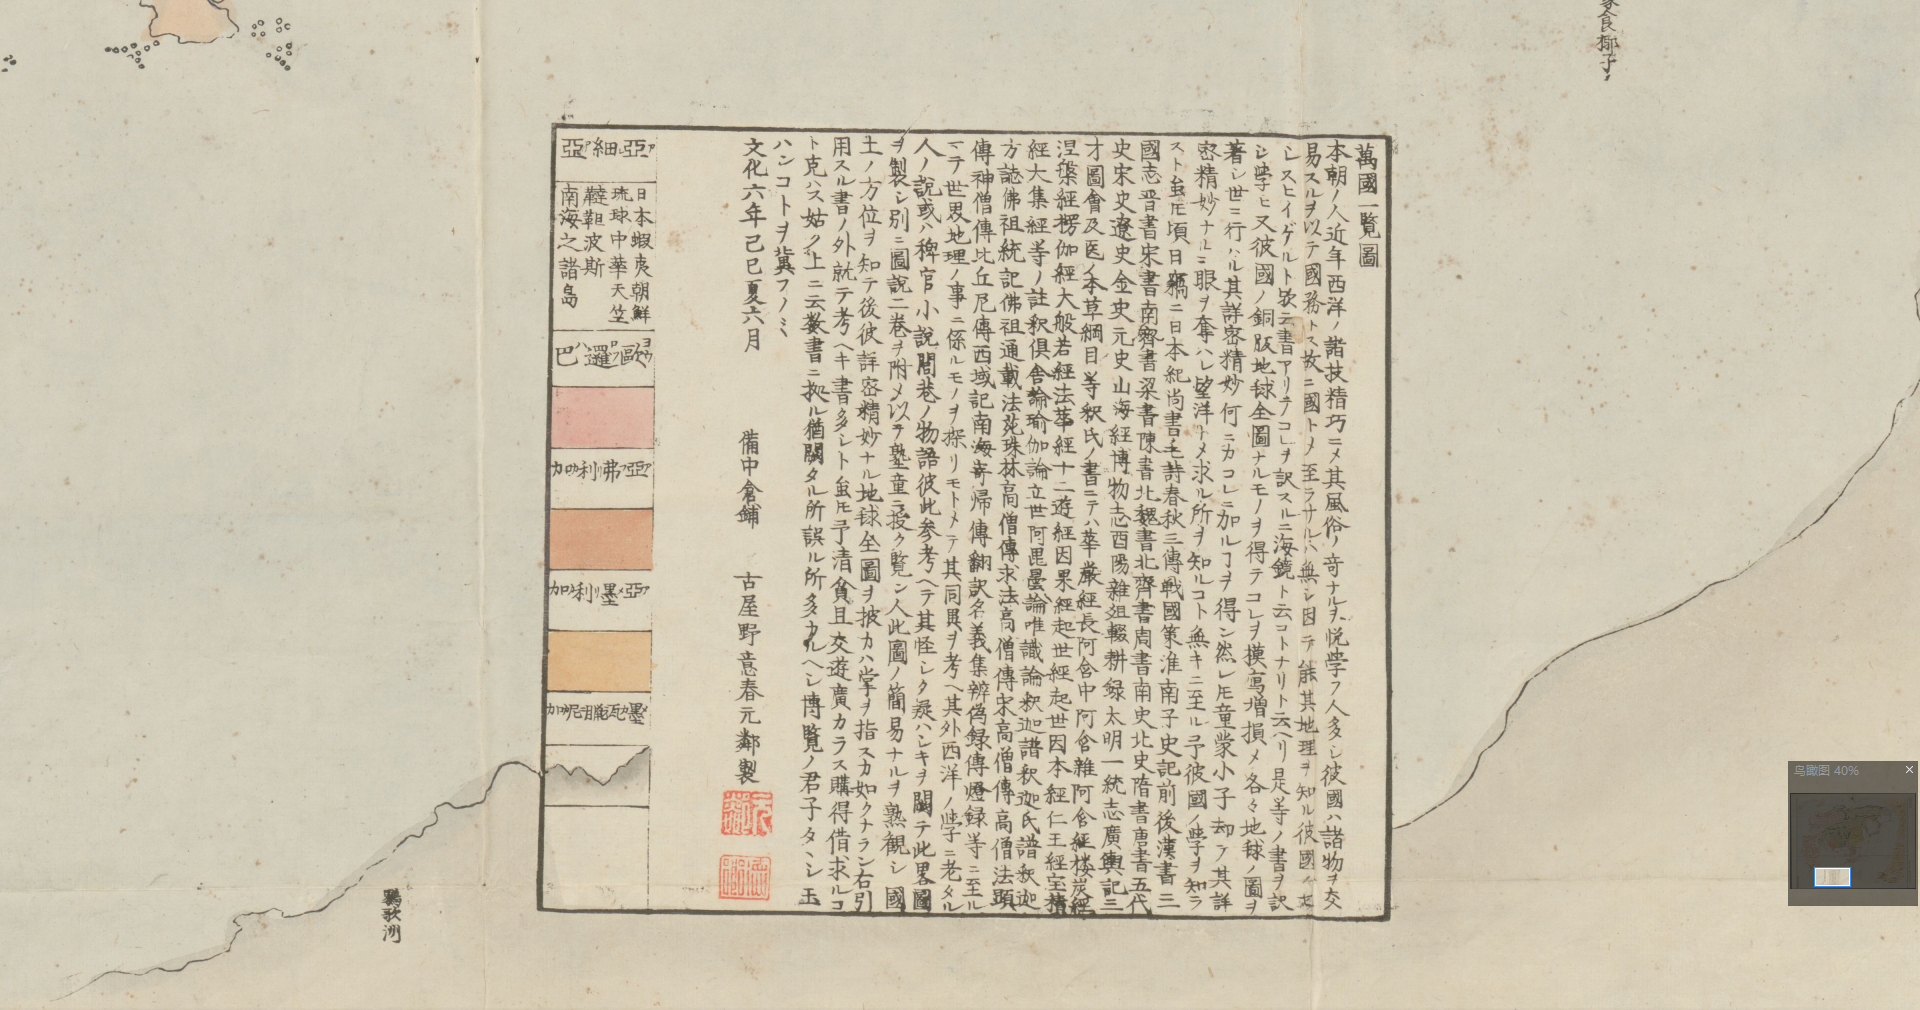 萬國一覧圖
本朝ノ人近年西洋ノ諸技精巧ニメ其風俗ノ奇ナルヲ悦学フ人多シ彼國ハ諸物ヲ交
易スルヲ以テ國務トス故ニ國トメ至ラサルハ無シ因テ能其地理ヲ知ル彼國ノ
シスヒイゲルト云書アリテコレヲ訳スルニ海鏡ト云コトナリト云ヘリ是等ノ書ヲ訳
シ学ヒ又彼國ノ銅版地球全圖ナルモノヲ得テコレヲ摸寫増損メ各々地球ノ圖ヲ
著シ世ニ行ハル其詳密精妙何ニカコレニ加ルコヲ得ン然レ𪜈童蒙小子却テ其詳
密精妙ナルニ眼ヲ奪ハレ望洋トメ求ル所ヲ知ルコト無キニ至ル予彼國ノ学ヲ知ラ
スト虽𪜈頃日竊ニ日本紀尚書毛詩春秋三傳戰國策淮南子史記前後漢書三
國志晋書宋書南齊書梁書陳書北魏書北齊書周書南史北史隋書唐書五代
史宋史遼史金史元史山海經博物志酉陽雜俎輟耕録太明一統志廣輿記三
才圖會及医ノ本草綱目等釈氏ノ書ニテハ華嚴經長阿含中阿含雜阿含經楼炭經
涅槃經楞伽經大般若經法華經十二遊經因果經起世經起世因本經仁王經宝積
經大集經等ノ註釈倶舎論瑜伽論立世阿毘曇論唯識論釈迦譜釈迦氏譜釈迦
方誌佛祖統記佛祖通載法苑珠林高僧傳求法高僧傳宋高僧傳高僧法顕
傳神僧傳比丘尼傳西域記南海寄帰傳翻訳名義集辨偽録傳燈録等ニ至ル
ニテ世界地理ノ事ニ係ルモノヲ探リモトメテ其同異ヲ考ヘ其外西洋ノ学ニ老タル
人ノ説或ハ稗官小説閭巷ノ物語彼此参考ヘテ其怪シク疑ハシキヲ闕テ此畧圖
ヲ製シ別ニ圖説二巻ヲ附メ以テ塾童ニ授ク覧ン人此圖ノ簡易ナルヲ熟観シ國
土ノ方位ヲ知テ後彼詳密精妙ナル地球全圖ヲ披カハ掌ヲ指スカ如クナラン右引
用スル書ノ外就テ考ヘキ書多シト虽𪜈予清貧且交遊廣カラス購得借求ルコ
ト克ハス姑ク上ニ云数書ニ拠ル猶闕タル所誤ル所多カルヘシ博覧ノ君子タヽシ玉
ハンコトヲ冀フノミ
文化六年己巳夏六月
備中倉鋪 古屋野意春元鄰製
亞細亞
日本蝦夷朝鮮
琉球中華天竺
韃靼波斯
南海之諸島
歐邏巴
亞弗利加
亞墨利加
墨瓦臘泥加
鸚歌洲
食椰子
鸟瞰图 40%